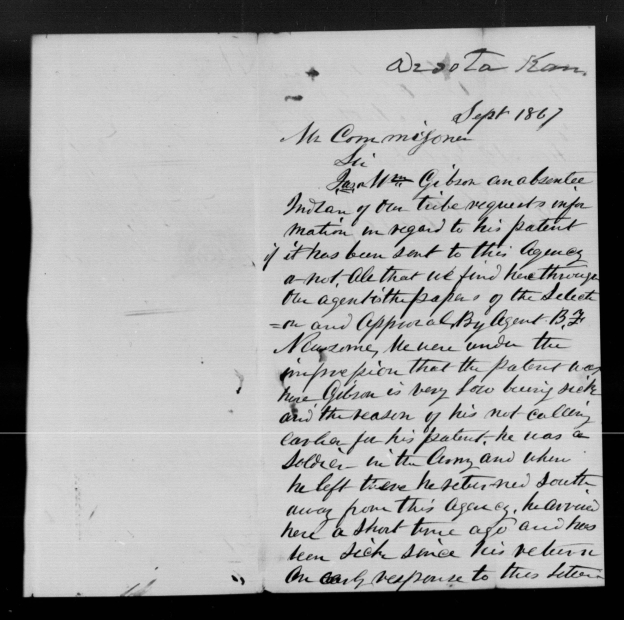 Desota Kan.
Sept 1867
Mr Commisjoner
Sir
Wm Gibson an absentee
Indian of our tribe requests infor
mation in regard to his patent
if it has been sent to this Agency
or not, All that we find here through
our agent is the papers of the Selecti
=on and Approval, By Agent B.F
Newsome, We were under the
impression that the patent was
here Gibson is very low being sick
and the reason of his not calling
earlier for his patent. he was a
Soldier in the Army and when
he left there he returned South
away from this Agency, he arrived
here a short time ago and has
been sick since his return
An early response to this letter